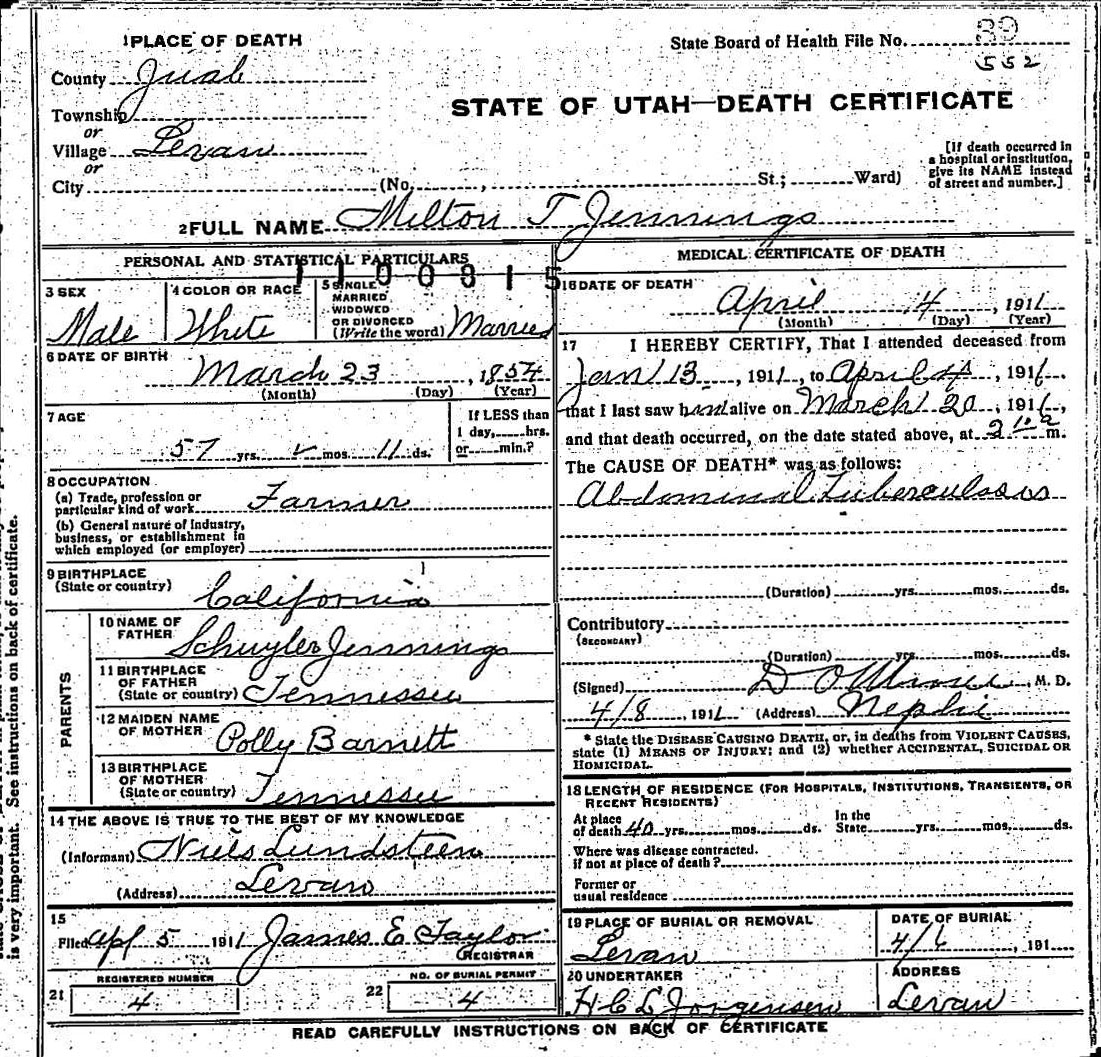 1 PLACE OF DEATH
State Board of Health File No. 89
552
County Juab
STATE OF UTAH—DEATH CERTIFICATE
Township
or
Village Levan
or
City (No. , St.; Ward)
[If death occurred in
a hospital or institution,
give its NAME instead
of street and number.]
2 FULL NAME Milton T Jennings
PERSONAL AND STATISTICAL PARTICULARS
1100815
3 SEX
Male
4 COLOR OR RACE
White
5 SINGLE
MARRIED
WIDOWED
OR DIVORCED
(Write the word) Married
6 DATE OF BIRTH
March 23, 1854
(Month) (Day) (Year)
7 AGE
57 yrs. mos. 11 ds.
If LESS than
1 day, hrs.
or min.?
8 OCCUPATION
(a) Trade, profession or
particular kind of work Farmer
(b) General nature of Industry,
business, or establishment in
which employed (or employer)
9 BIRTHPLACE
(State or country)
California
PARENTS
10 NAME OF
FATHER
Schuyler Jennings
11 BIRTHPLACE
OF FATHER
(State or country) Tennessee
12 MAIDEN NAME
OF MOTHER
Polly Barnett
13 BIRTHPLACE
OF MOTHER
(State or country) Tennessee
14 THE ABOVE IS TRUE TO THE BEST OF MY KNOWLEDGE
(Informant) Niels Lundsteen
(Address) Levan
15
Filed Apl 5 1911 James E Taylor
REGISTRAR
REGISTERED NUMBER
21 4
NO. OF BURIAL PERMIT
22 4
MEDICAL CERTIFICATE OF DEATH
16 DATE OF DEATH
April 4, 1911
(Month) (Day) (Year)
17 I HEREBY CERTIFY, That I attended deceased from
Jan 13, 1911, to April 4, 1911,
that I last saw him alive on March 20, 1911,
and that death occurred, on the date stated above, at m.
The CAUSE OF DEATH* was as follows:
Abdominal Tuberculosis
(Duration) yrs. mos. ds.
Contributory
(SECONDARY)
(Duration) yrs. mos. ds.
(Signed) D O M. D.
4/8, 1911 (Address) Nephi
* State the DISEASE CAUSING DEATH, or, in deaths from VIOLENT CAUSES,
state (1) MEANS OF INJURY; and (2) whether ACCIDENTAL, SUICIDAL OR
HOMICIDAL.
18 LENGTH OF RESIDENCE (FOR HOSPITALS, INSTITUTIONS, TRANSIENTS, OR
RECENT RESIDENTS)
At place
of death 40 yrs. mos. ds.
In the
State yrs. mos. ds.
Where was disease contracted.
if not at place of death?
Former or
usual residence
19 PLACE OF BURIAL OR REMOVAL
Levan
DATE OF BURIAL
4/6, 191
20 UNDERTAKER
H C L Jorgensen
ADDRESS
Levan
READ CAREFULLY INSTRUCTIONS ON BACK OF CERTIFICATE
is very important. See instructions on back of certificate.